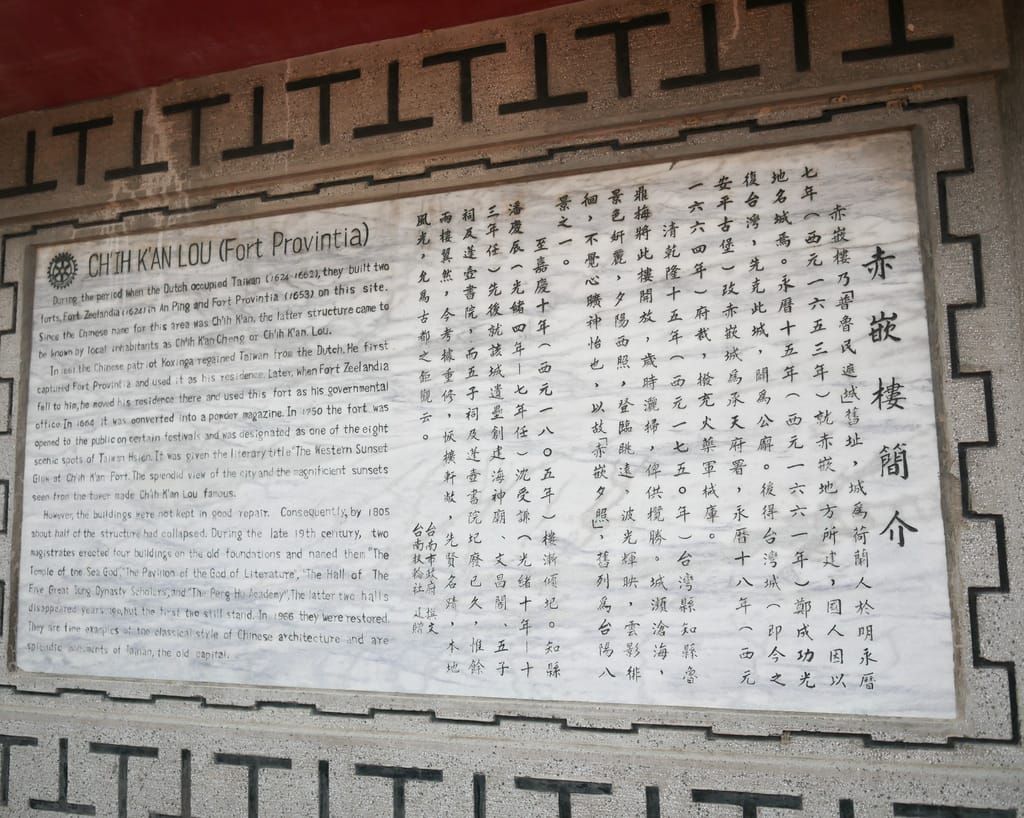 CH'IH K'AN LOU (Fort Provintia)
During the period when the Dutch occupied Taiwan (1624-1662), they built two
forts, Fort Zeelandia (1624) in An Ping and Fort Provintia (1653) on this site.
Since the Chinese name for this area was Ch'ih K'an, the latter structure came to
be known by local inhabitants as Ch'ih K'an Cheng or Ch'ih K'an Lou.
In 1661 the Chinese patriot Koxinga regained Taiwan from the Dutch. He first
captured Fort Provintia and used it as his residence. Later, when Fort Zeelandia
fell to him, he moved his residence there and used this fort as his governmental
office. In 1664 it was converted into a powder magazine. In 1750 the fort was
opened to the public on certain festivals and was designated as one of the eight
scenic spots of Taiwan Hsien. It was given the literary title "The Western Sunset
Glow at Ch'ih K'an Fort. The splendid view of the city and the magnificent sunsets
seen from the tower made Ch'ih K'an Lou famous.
However, the buildings were not kept in good repair. Consequently, by 1805
about half of the structure had collapsed. During the late 19th century, two
magistrates erected four buildings on the old foundations and named them "The
Temple of the Sea God", "The Pavilion of the God of Literature", "The Hall of The
Five Great Sung Dynasty Scholars", and "The Peng Hu Academy". The latter two halls
disappeared years ago, but the first two still stand. In 1966 they were restored.
They are fine examples of the classical style of Chinese architecture and are
splendid monuments of Tainan, the old capital.
赤嵌樓簡介
赤嵌樓乃普魯民遮城舊址,城為荷蘭人於明永曆
七年(西元一六五三年)就赤嵌地方所建,國人因以
地名城焉。永曆十五年(西元一六六一年)鄭成功光
復台灣,先克此城,闢為公廨。後得台灣城(即今之
安平古堡)改赤嵌城為承天府署,永曆十八年(西元
一六六四年)府裁,撥充火藥軍械庫。
清乾隆十五年(西元一七五〇年)台灣縣知縣魯
鼎梅將此樓開放,歲時灑掃,俾供攬勝。城瀕滄海,
景色妍麗,夕陽西照,登臨眺遠,波光輝映,雲影徘
徊,不覺心曠神怡也,以故「赤嵌夕照」,舊列為台陽八
景之一。
至嘉慶十年(西元一八〇五年)樓漸傾圮。知縣
潘慶辰(光緒四年—七年任)沈受謙(光緒十年—十
三年任)先後就該城遺壘創建海神廟、文昌閣、五子
祠及蓬壺書院,而五子祠及蓬壺書院圮廢已久,惟餘
兩樓翼然,今考據重修,恢擴軒敞,先賢名蹟,本地
風光,允為古都之鉅觀云。
台南市政府 撰文
台南扶輪社 建贈